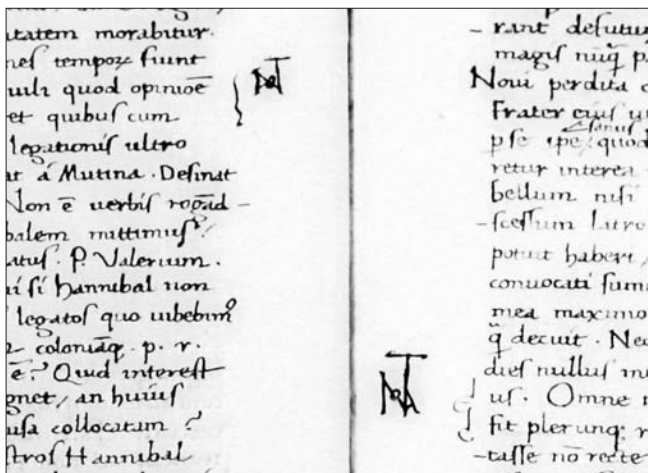 utatem morabitur.
nes tempoꝝ fiunt
uili quod opinioē
et quibuſ cum
legationiſ ultro
at á Mutina. Deſinat
Non ē uerbiſ rogād-
balem mittimuſ?
atuſ. P. Valerium.
ui ſi hannibal non
legatoſ quo iubebimꝰ
coloniāq. p. r.
ē? Quid intereſt
gnet, an huiuſ
uſa collocatum?
ſtroſ Hannibal
NOTA
NOTA
-rant deſutu
magiſ nūq̄ p
Noui perdita
Frater eiuſ
p ſe ipe, quod
retur interea
bellum niſi
-ſceſſum latro
potuit haberi,
conuocati ſum
mea maximo
q̄ decuit. Nec
dieſ nulluſ
uſ. Omne
fit plerunq; r
-taſſe nō recte